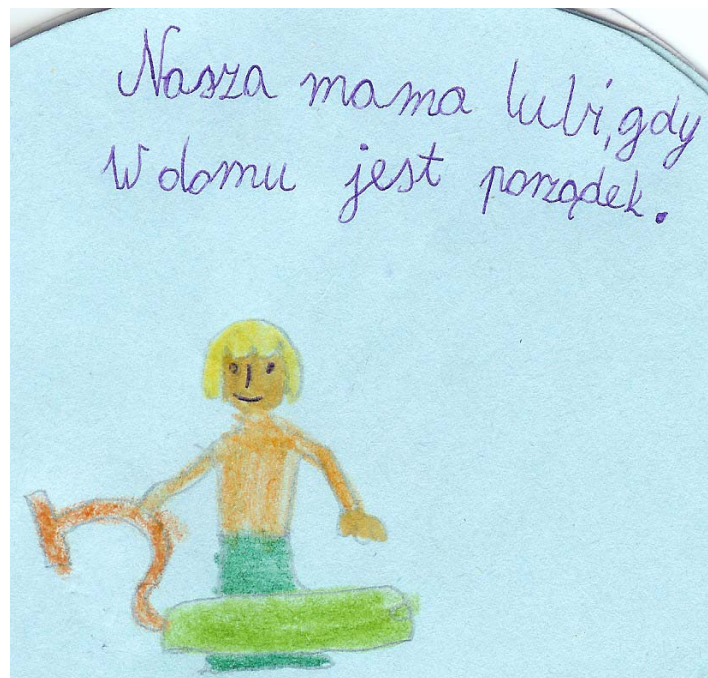 Nasza mama lubi, gdy
w domu jest porządek.